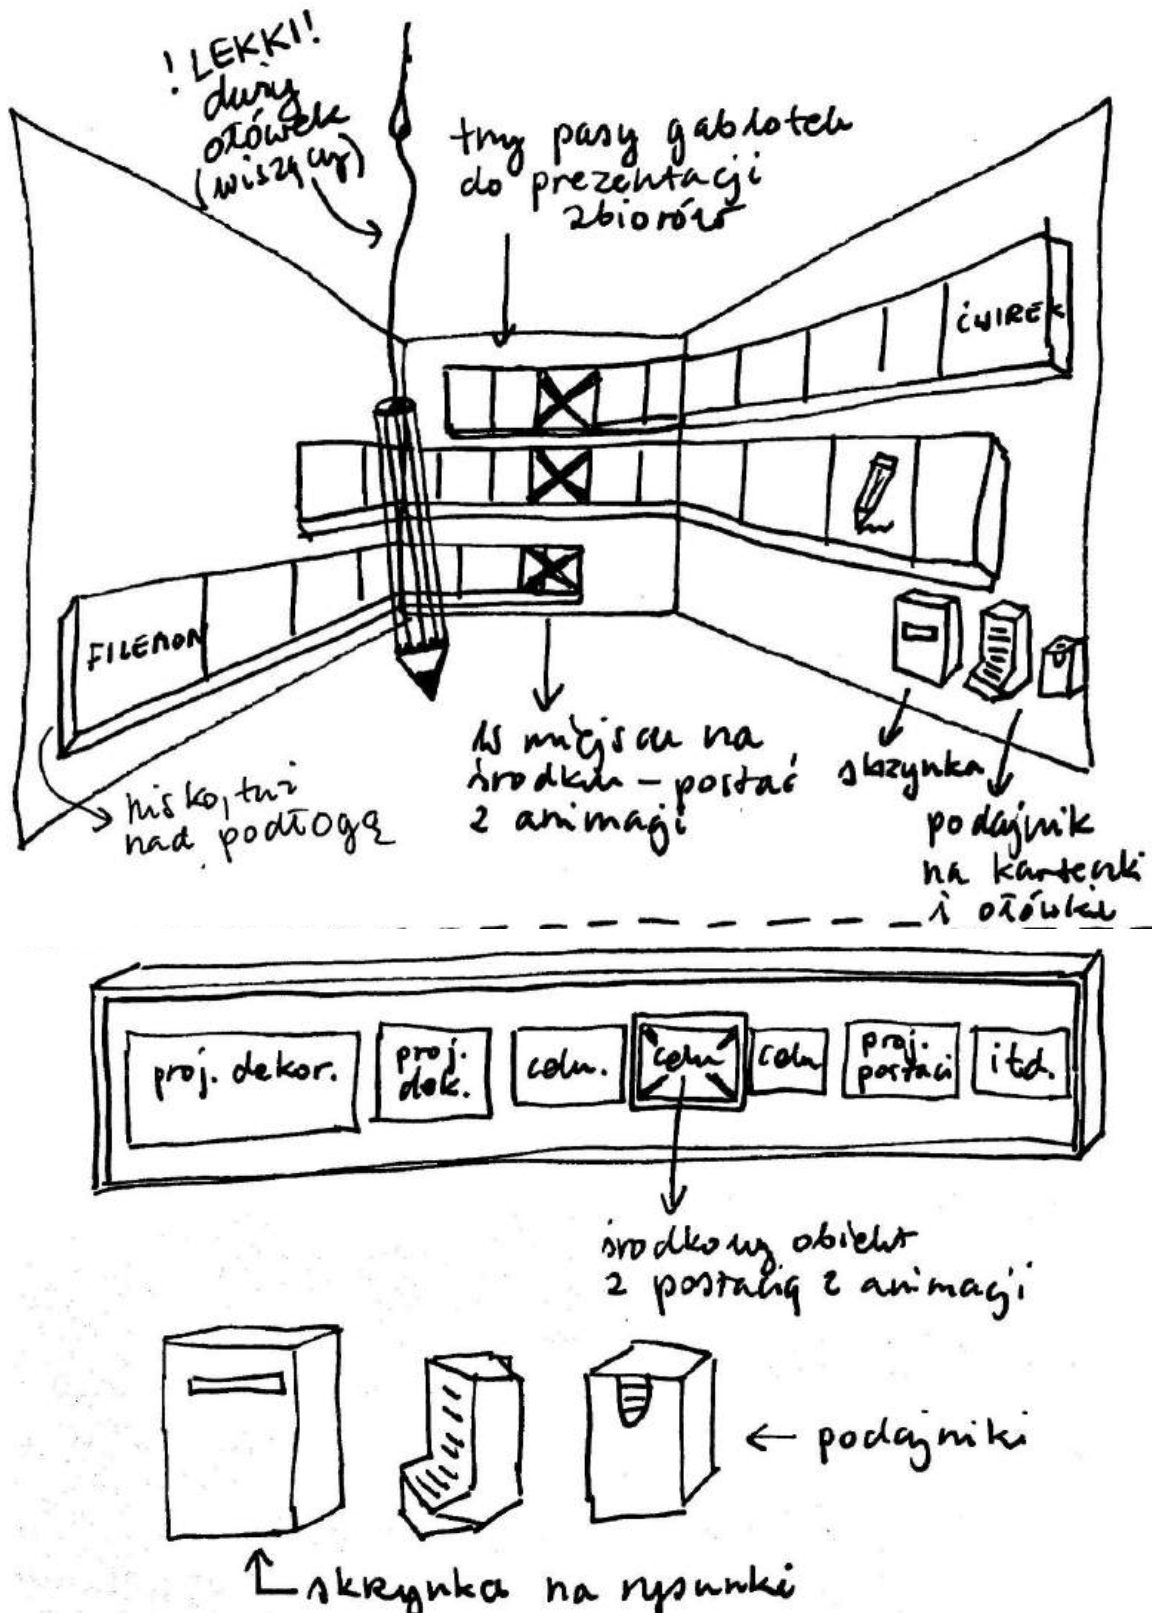 ! LEKKI!
duży
ołówek
(wiszący)
trzy pasy gablotek
do prezentacji
zbiorów
ĆWIREK
FILEMON
nisko, tuż
nad podłogą
w miejscu na
środku – postać
z animacji
skrzynka
podajnik
na karteczki
i ołówki
proj. dekor.
proj.
dek.
celu.
celu
celu
proj.
postaci
itd.
środkowy obiekt
z postacią z animacji
podajniki
skrzynka na rysunki